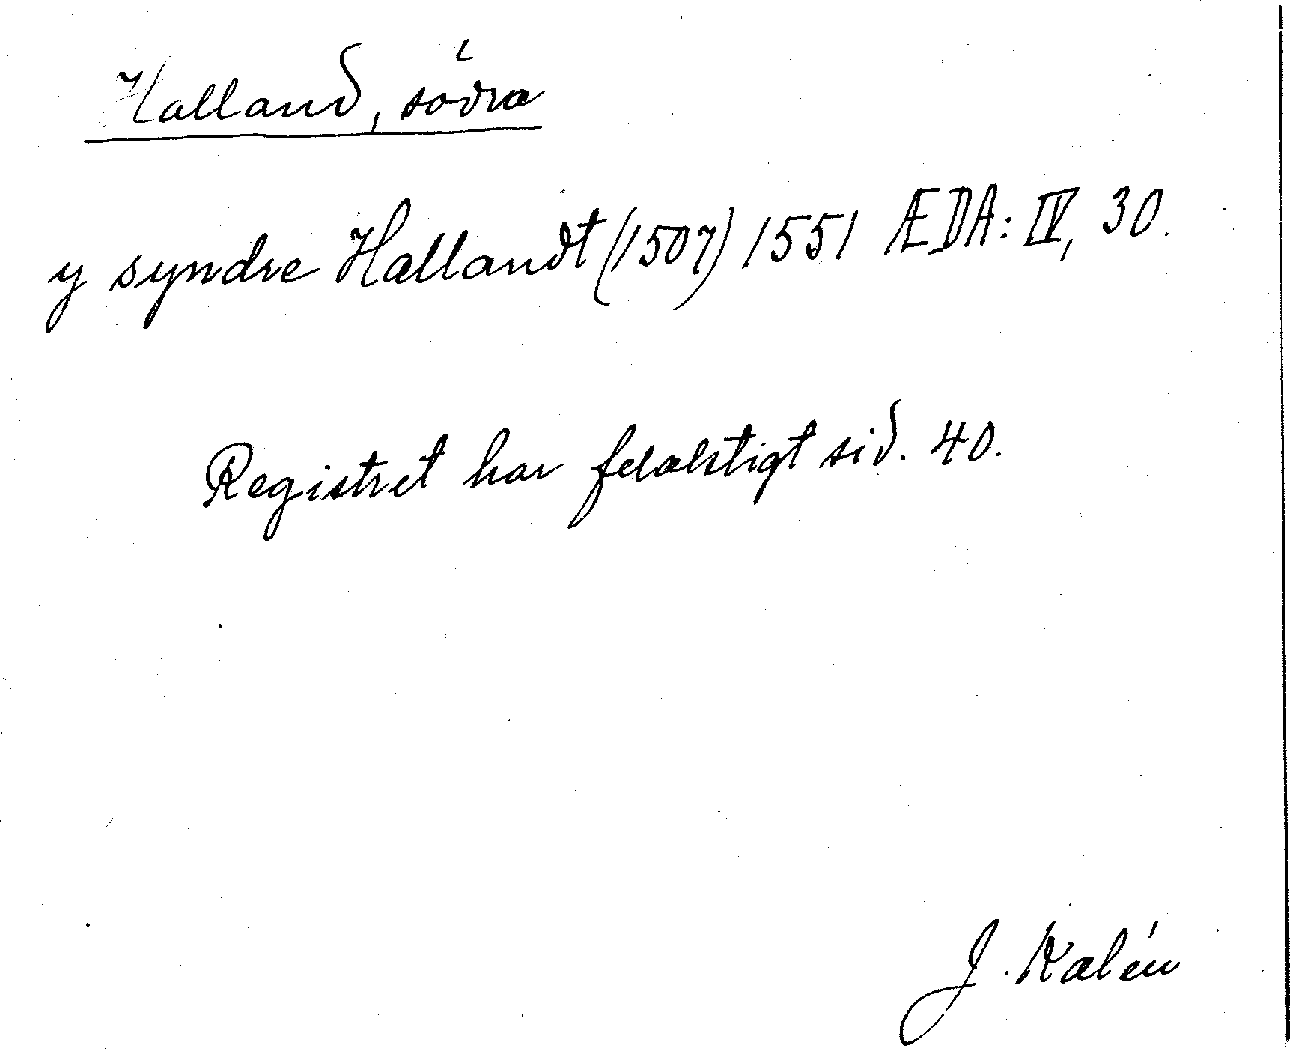 Halland, södra
y syndre Hallandt (1507) 1551 ÆDA: IV, 30.
Registret har felaktigt sid. 40.
J. Kalén